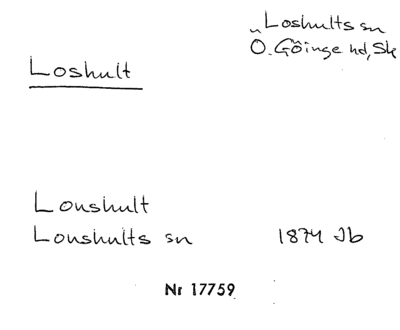 Loshults sn
Ö. Göinge hd, Sk
Loshult
Lonshult
Lonshults sn 1874 Jb
Nr 17759